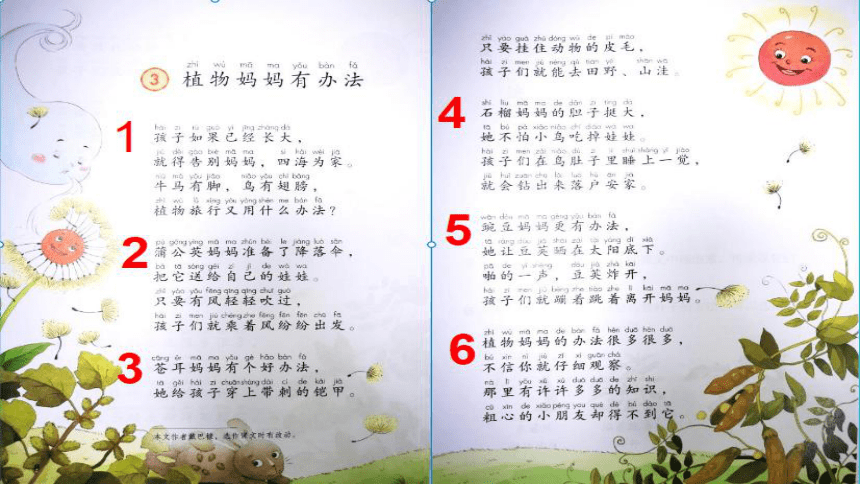 zhí wù mā ma yǒu bàn fǎ
3 植物妈妈有办法
1
hái zi rú guǒ yǐ jīng zhǎng dà
孩子如果已经长大，
jiù děi gào bié mā ma sì hǎi wéi jiā
就得告别妈妈，四海为家。
niú mǎ yǒu jiǎo niǎo yǒu chì bǎng
牛马有脚，鸟有翅膀，
zhí wù lǚ xíng yòu yòng shén me bàn fǎ
植物旅行又用什么办法？
2
pú gōng yīng mā ma zhǔn bèi le jiàng luò sǎn
蒲公英妈妈准备了降落伞，
bǎ tā sòng gěi zì jǐ de wá wa
把它送给自己的娃娃。
zhǐ yào yǒu fēng qīng qīng chuī guò
只要有风轻轻吹过，
hái zi men jiù chéng zhe fēng fēn fēn chū fā
孩子们就乘着风纷纷出发。
3
cāng ěr mā ma yǒu gè hǎo bàn fǎ
苍耳妈妈有个好办法，
tā gěi hái zi chuān shàng dài cì de kǎi jiǎ
她给孩子穿上带刺的铠甲。
本文作者戴巴棣，选作课文时有改动。
zhǐ yào guà zhù dòng wù de pí máo
只要挂住动物的皮毛，
hái zi men jiù néng qù tián yě shān wā
孩子们就能去田野、山洼。
4
shí liu mā ma de dǎn zi tǐng dà
石榴妈妈的胆子挺大，
tā bú pà xiǎo niǎo chī diào wá wa
她不怕小鸟吃掉娃娃。
hái zi men zài niǎo dù zi li shuì shàng yí jiào
孩子们在鸟肚子里睡上一觉，
jiù huì zuān chū lái luò hù ān jiā
就会钻出来落户安家。
5
wān dòu mā ma gèng yǒu bàn fǎ
豌豆妈妈更有办法，
tā ràng dòu jiá shài zài tài yáng dǐ xià
她让豆荚晒在太阳底下。
pā de yì shēng dòu jiá zhà kāi
啪的一声，豆荚炸开，
hái zi men jiù bèng zhe tiào zhe lí kāi mā ma
孩子们就蹦着跳着离开妈妈。
6
zhí wù mā ma de bàn fǎ hěn duō hěn duō
植物妈妈的办法很多很多，
bú xìn nǐ jiù zǐ xì guān chá
不信你就仔细观察。
nà lǐ yǒu xǔ xǔ duō duō de zhī shi
那里有许许多多的知识，
cū xīn de xiǎo péng yǒu què dé bú dào tā
粗心的小朋友却得不到它。